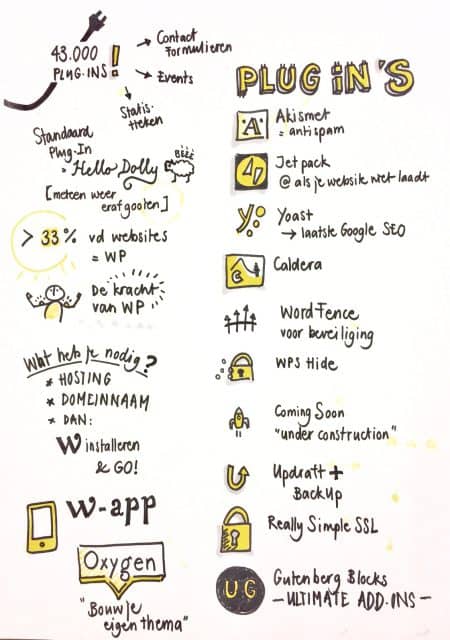 43.000
PLUG-INS!
→ Contact
Formulieren
→ Events
Statis-
tieken
Standaard
Plug-In
= Hello Dolly
BÈÈÈ
[meteen weer
eraf gooien]
> 33% vd websites
= WP
De kracht
van WP
Wat heb je nodig?
* HOSTING
* DOMEINNAAM
* DAN:
W installeren
& GO!
W-app
Oxygen
"Bouw je
eigen thema"
PLUG iN'S
A
Akismet
= antispam
Jetpack
@ als je website niet laadt
Yoast
→ laatste Google SEO
C
Caldera
WordFence
voor beveiliging
WPS Hide
Coming Soon
"under construction"
Updraft +
BackUp
Really Simple SSL
UG
Gutenberg Blocks
— ULTIMATE ADD.INS —